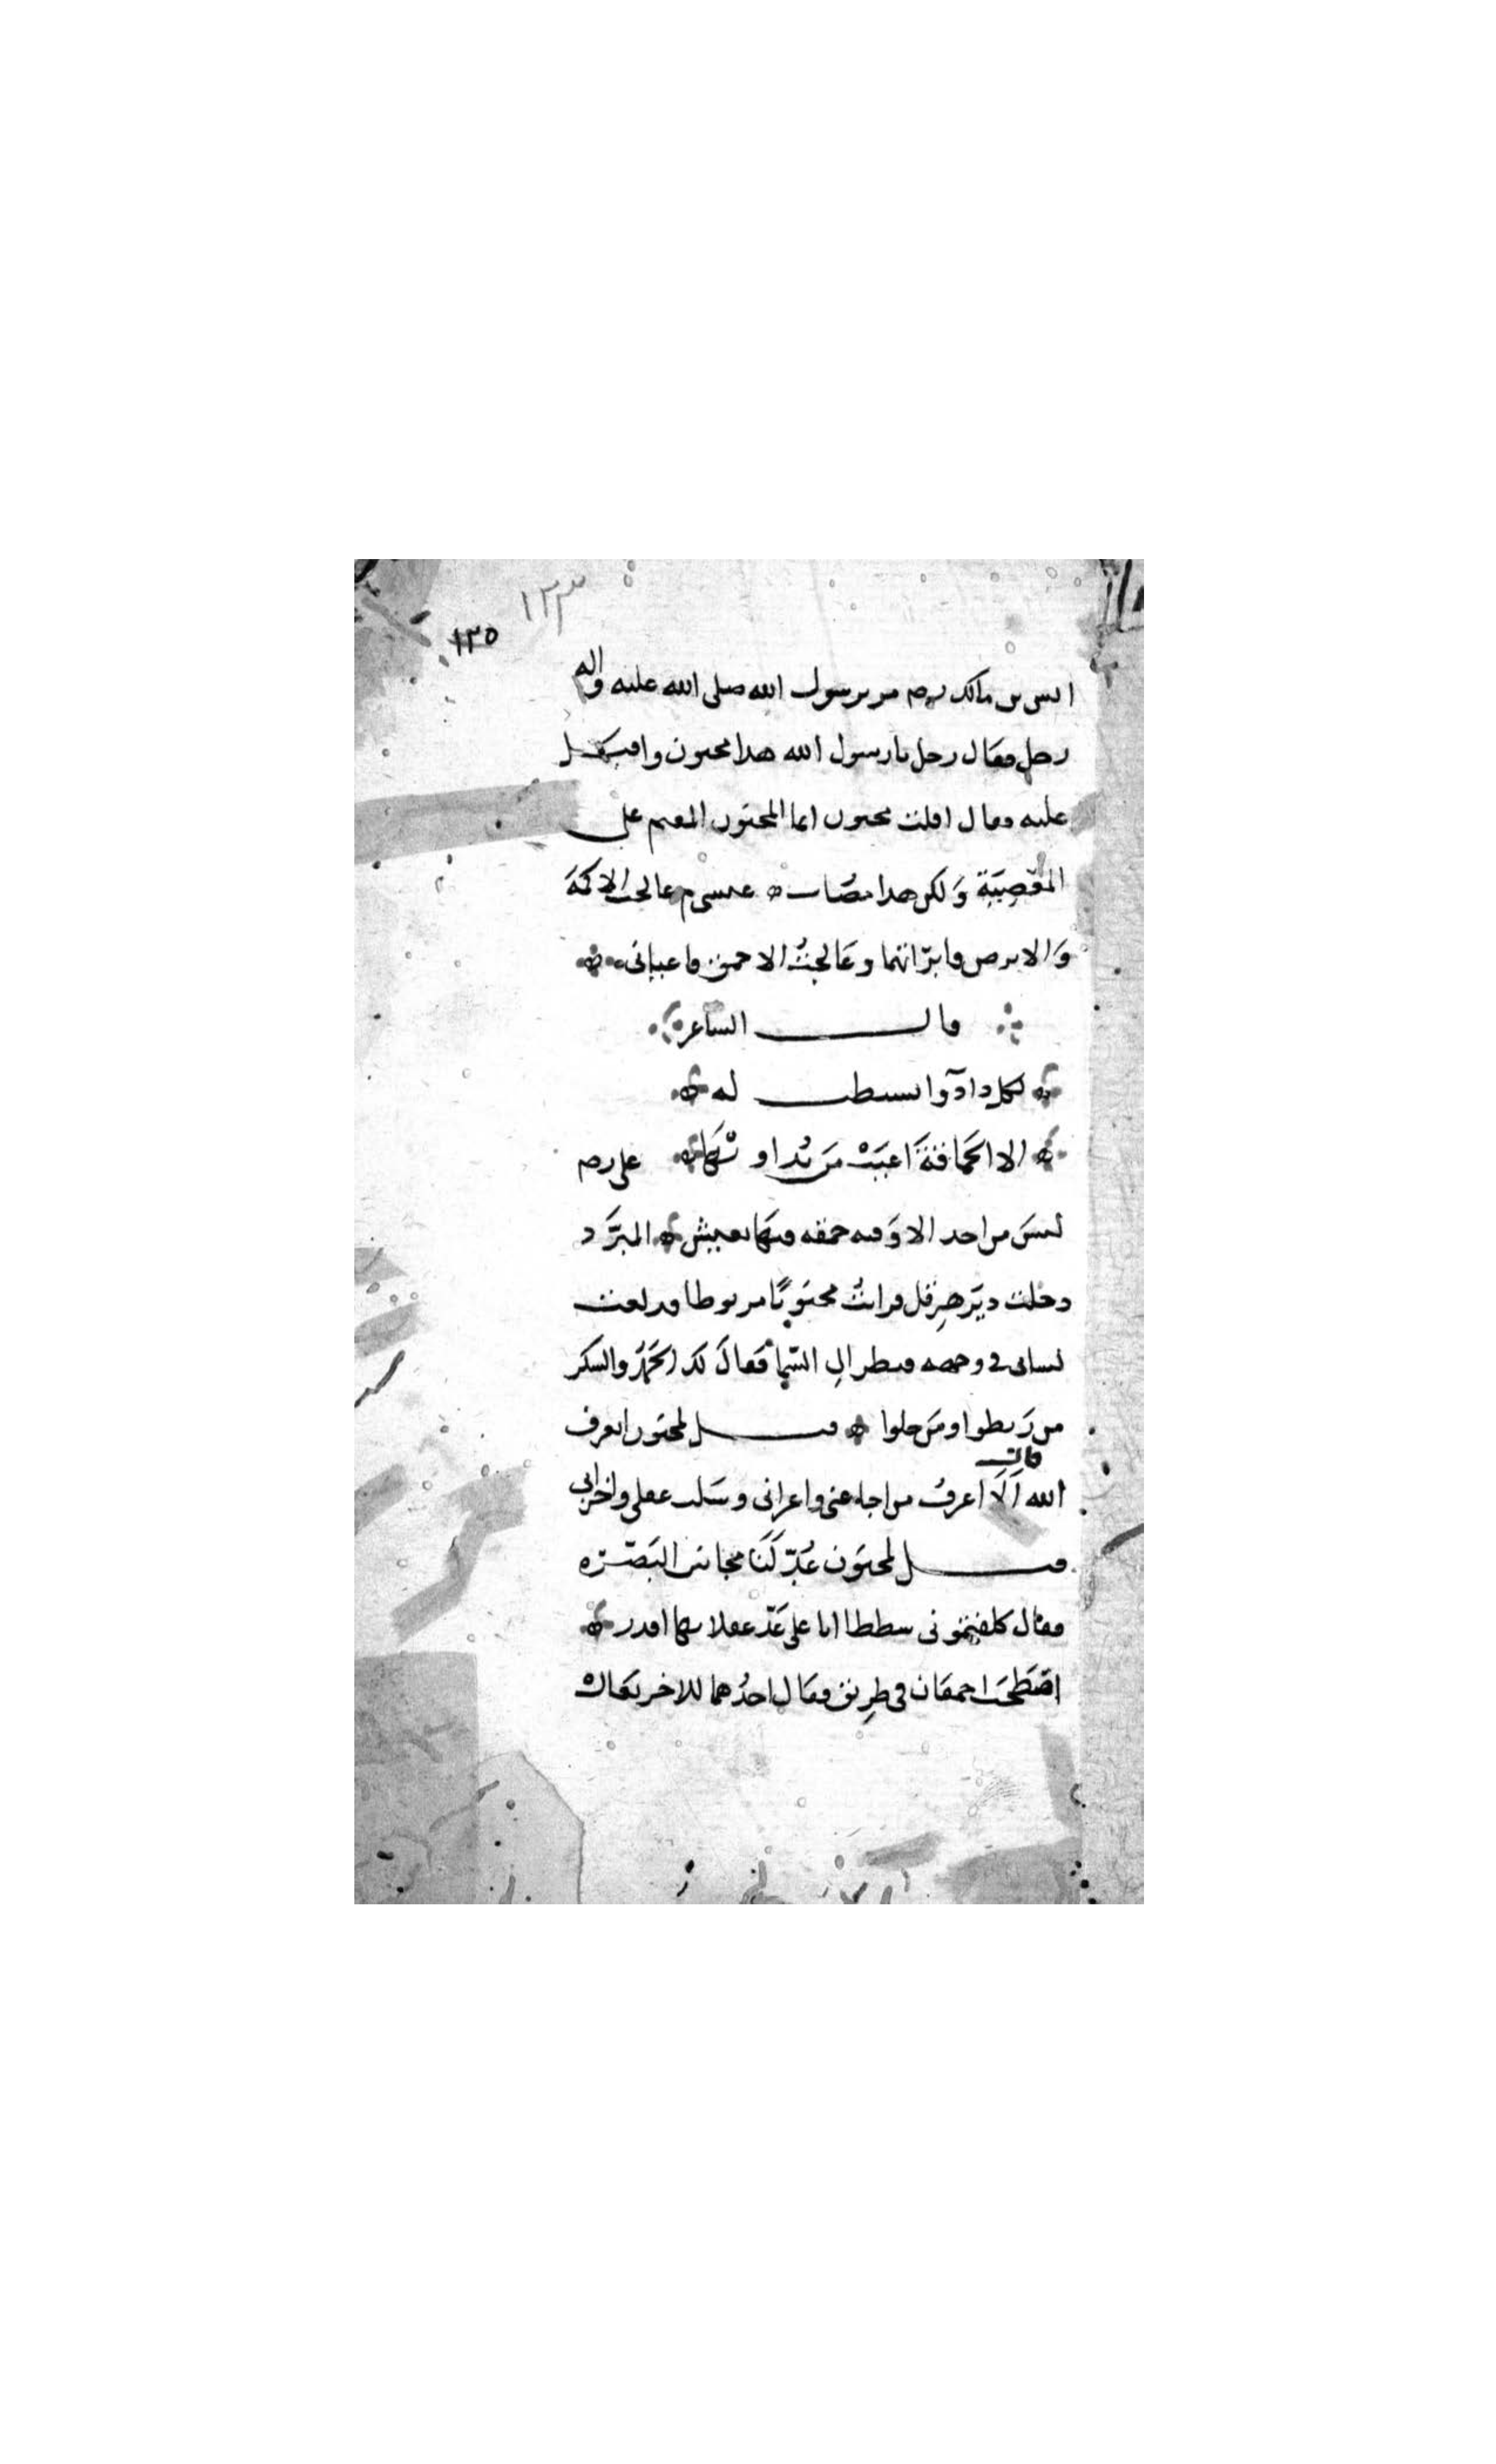 ١٣٣
١٢٥
انس بن مالك رضه مر برسول الله صلى الله عليه واله
رجل فقال رجل يا رسول الله هذا مجنون واقبل
عليه وقال اقلت مجنون انما المجنون المقيم على
المعصية ولكن هذا مصاب ه عيسى م عالجت الاكمه
والابرص فابرأتهما وعالجت الاحمق فاعياني ه
قال الشاعر
لكل داء دوا يستطب له ه
الا الحماقة اعيت من يداويها ه على رضه
ليس من احد الا وفيه حمقه فبها يعيش ه المبرد
دخلت دير هرقل فرايت مجنونا مربوطا فدلعت
لساني في وجهه فنظر الى السما فقال لك الحمد والشكر
من ربطوا ومن حلوا ه قيل لمجنون اتعرف
قال
الله الا اعرف من اجاعني واعراني وسلب عقلي واخزاني
قيل لمجنون عد لنا مجانين البصره
فقال كلفتموني شططا انا على عد عقلايها اقدر ه
اصطحب احمقان في طريق فقال احدهما للاخر تعال